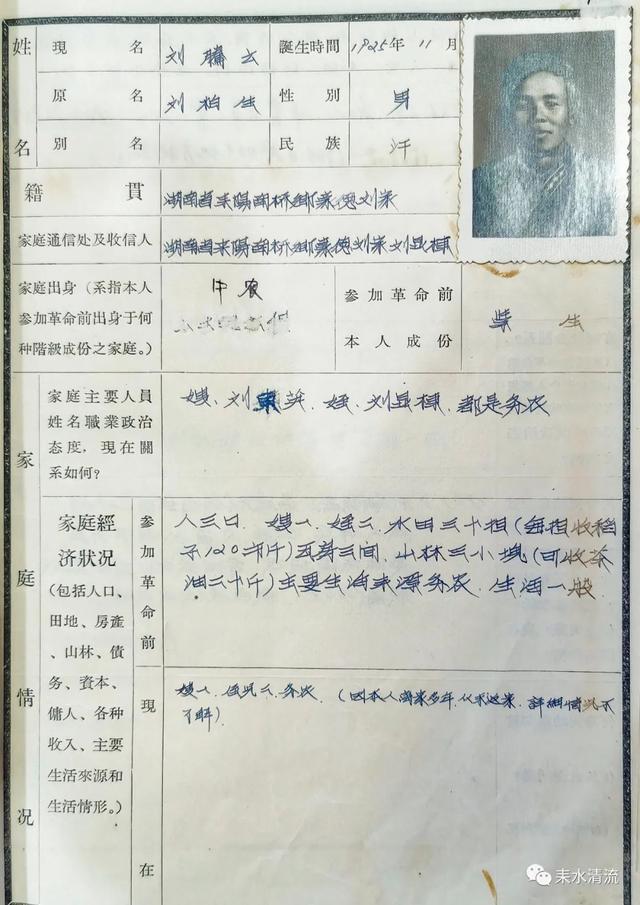 姓名
現名 刘騰云 誕生時間 1925年11月
原名 刘柏生 性別 男
別名 民族 汗
籍貫 湖南省耒陽南桥鄉豪傀刘家
家庭通信处及收信人 湖南省耒陽南桥鄉豪傀刘家刘显棟
家庭出身（系指本人
参加革命前出身于何
种階級成份之家庭。）
中农
参加革命前
本人成份
学生
家庭情况
家庭主要人員
姓名職業政治
态度，現在關
系如何？
嫂、刘 英．侄．刘显棟．都是务农
家庭經
济狀况
（包括人口、
田地、房產
、山林、債
务、資本、
傭人、各种
收入、主要
生活來源和
生活情形。）
参加革命前
人三口．嫂一、侄二．水田三十担（每担收稻
子120市斤）瓦房三间．山林三小塊（可收茶
油二十斤）主要生活来源务农．生活一般
現在
嫂一．侄兒二．务农．（因本人离家多年．从未返家．詳細情况不
了解）
耒水清流